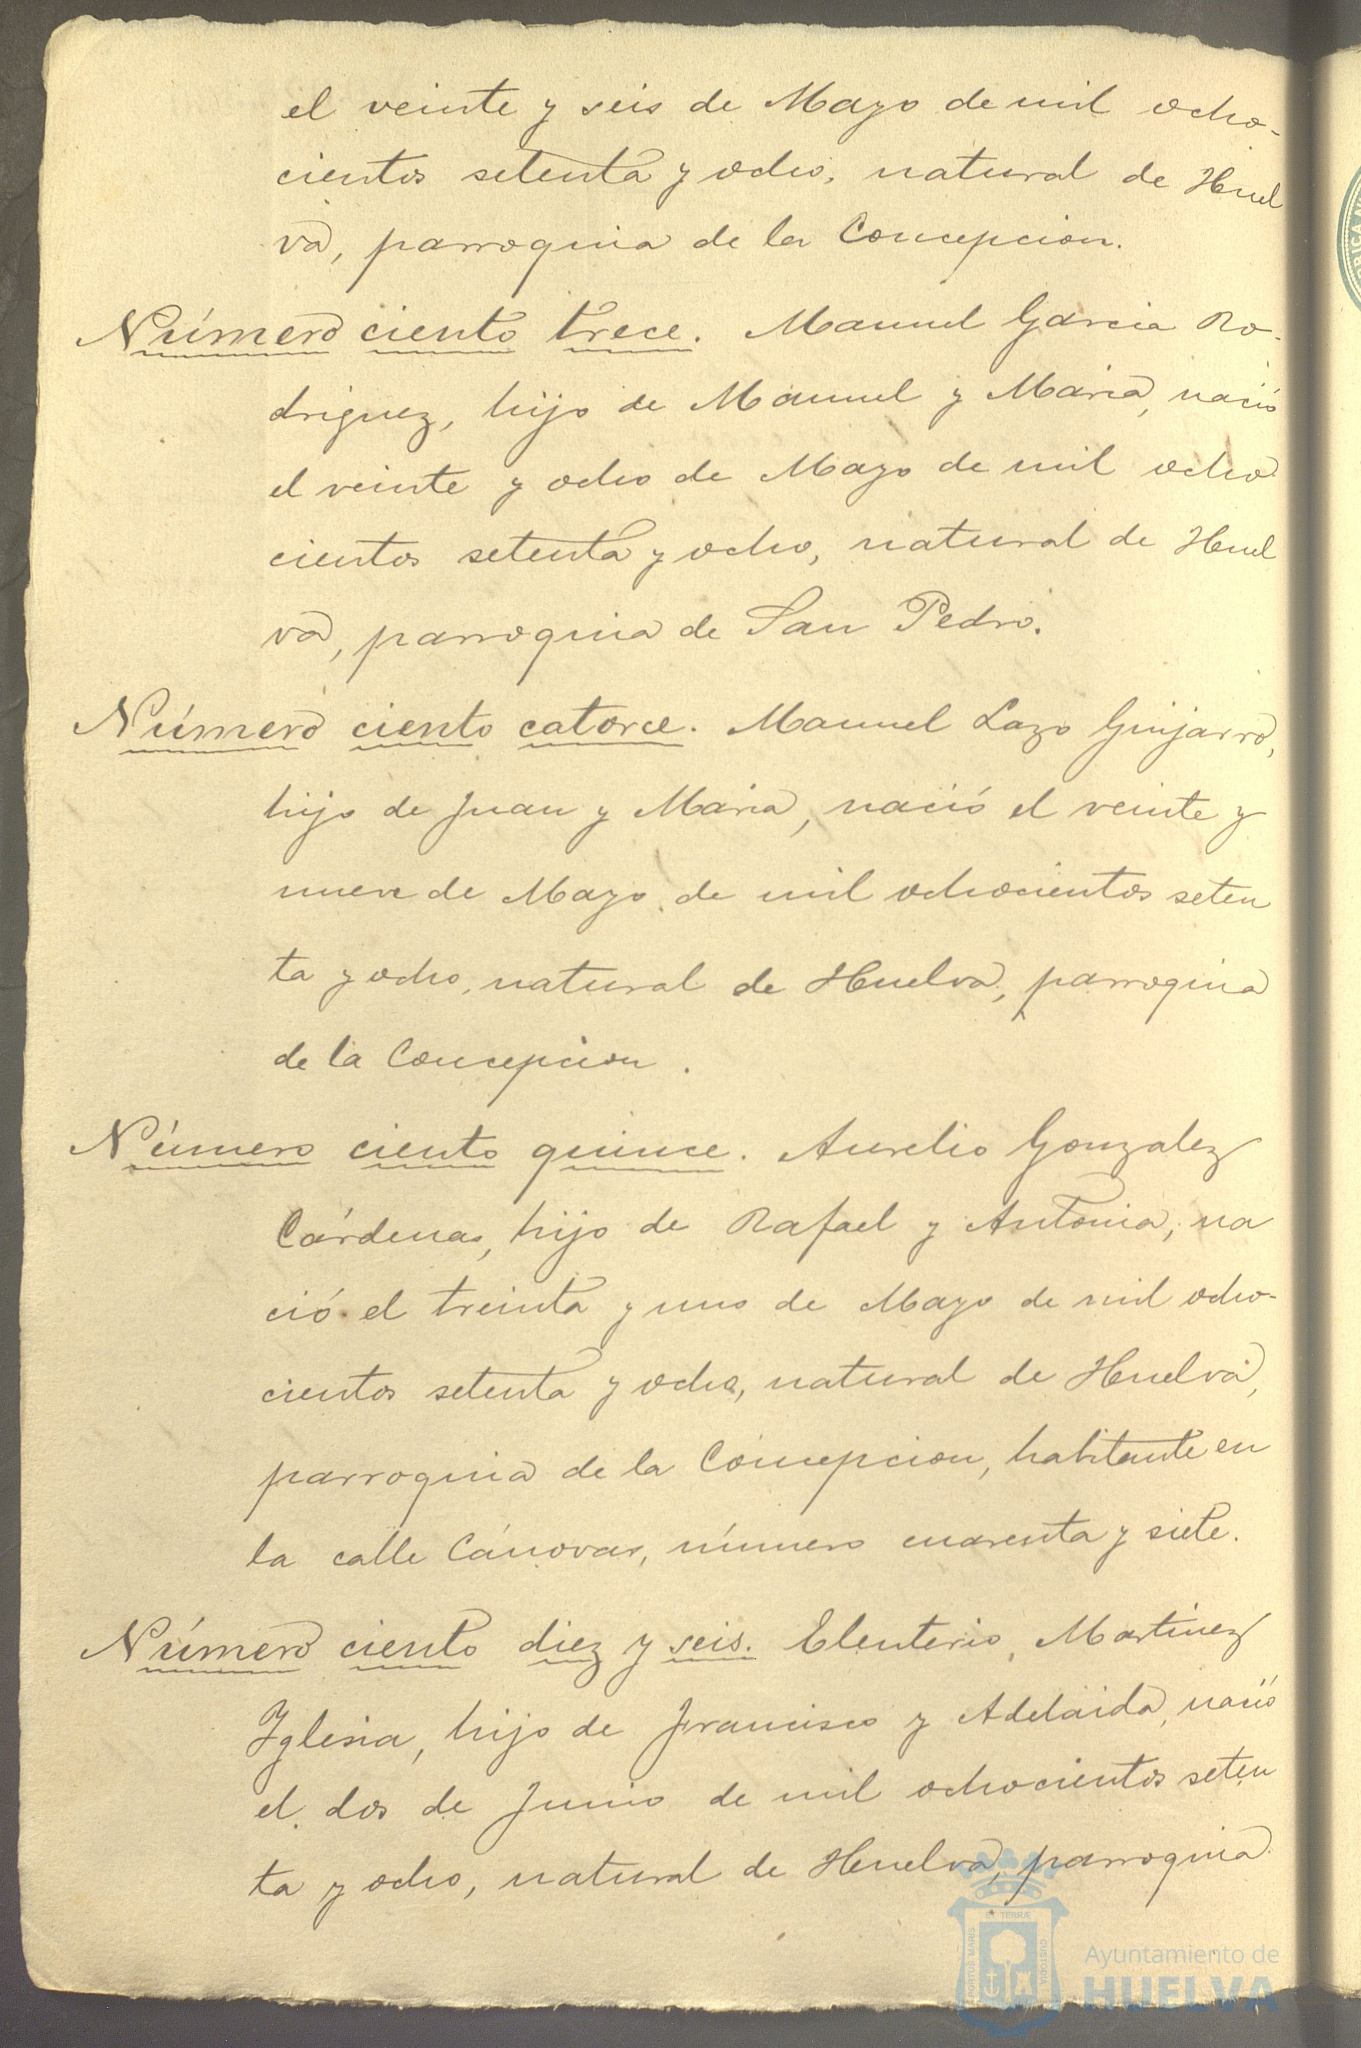 el veinte y seis de Mayo de mil ocho-
cientos setenta y ocho, natural de Huel
va, parroquia de la Concepcion.
Número ciento trece. Manuel Garcia Ro-
driguez, hijo de Manuel y Maria, nació
el veinte y ocho de Mayo de mil ocho
cientos setenta y ocho, natural de Huel
va, parroquia de San Pedro.
Número ciento catorce. Manuel Lazo Guijarro,
hijo de Juan y Maria, nació el veinte y
nueve de Mayo de mil ochocientos seten
ta y ocho, natural de Huelva, parroquia
de la Concepcion.
Número ciento quince. Aurelio Gonzalez
Cárdenas, hijo de Rafael y Antonia, na
ció el treinta y uno de Mayo de mil ocho-
cientos setenta y ocho, natural de Huelva,
parroquia de la Concepcion, habitante en
la calle Cánovas, número cuarenta y siete.
Número ciento diez y seis. Eleuterio, Martinez
Iglesia, hijo de Francisco y Adelaida, nació
el dos de Junio de mil ochocientos seten
ta y ocho, natural de Huelva, parroquia
Ayuntamiento de
HUELVA
PORTUS MARIS
ET TERRÆ
CUSTODIA